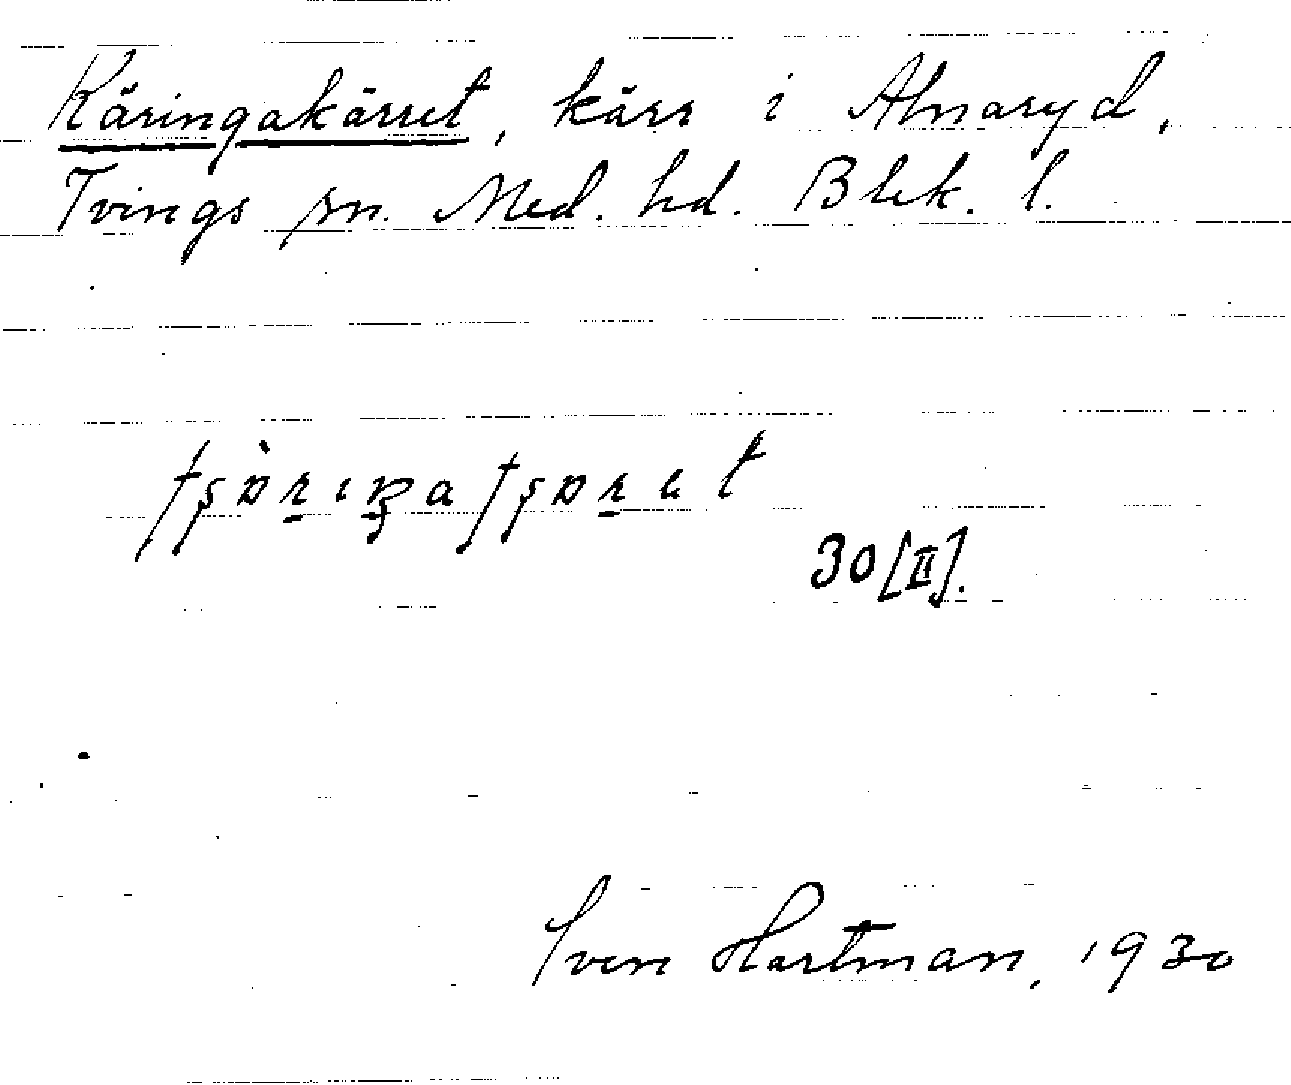 Käringakärret, kärr i Alnaryd,
Tvings sn. Med. hd. Blek. l.
30[II].
Sven Hartman, 1930